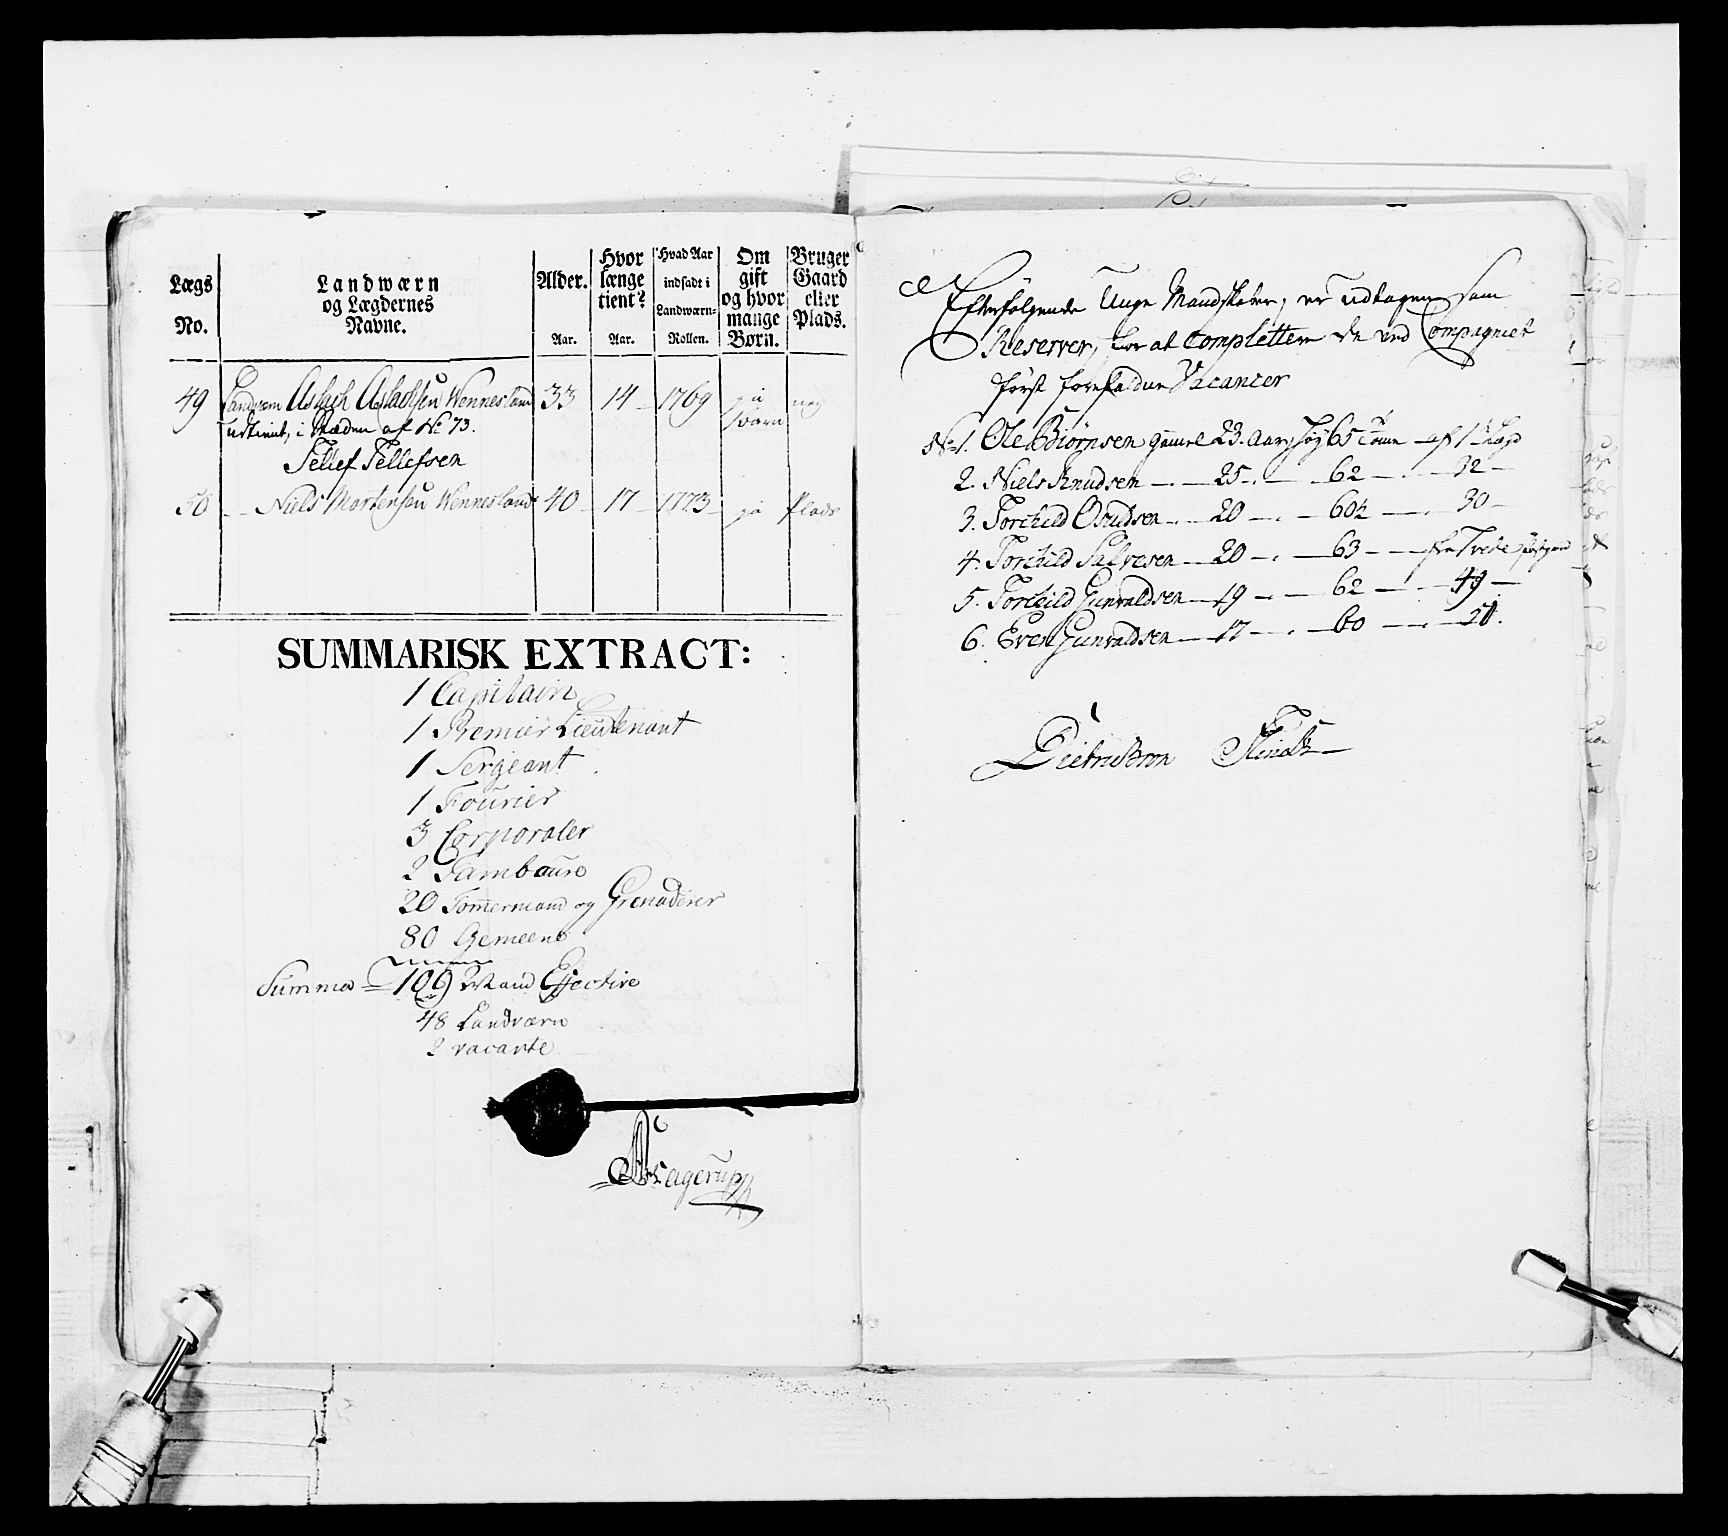 Lægs No.
Landwærn og Lægdernes Navne.
Alder. Aar.
Hvor længe tient? Aar.
Hvad Aar indsadt i Landwærn-Rollen.
Om gift og hvor mange Børn.
Bruger Gaard eller Plads.
49 Landværn Aslach Aslachsen Wennesland 33 14 1769 ja 1 barn nej
udtient, i Stæden af No 73.
Tellef Tellefsen
50 Niels Mortensen Wennesland 40 17 1773 ja Plads
SUMMARISK EXTRACT:
1 Capitain
1 Premier Lieutenant
1 Sergeant
1 Fourier
3 Corporaler
2 Tambours
20 Tømermænd og Grenaderer
80 Gemeene
Summa = 109 Mand Effective
48 Landværn
2 vacante
Kragerup
Efterfølgende Unge Mandskaber, er udtagen som
Reserver, for at Complettere de ved Compagniet
først forefaldne Vacancer
No 1. Ole Biørnsen gamel 23. Aar, høy 65 Tomer af 1ste Lægd
2. Niels Knudsen 25 62 32
3. Torchild Osuldsen 20 60½ 30
4. Torchild Salvesen 20 63 fra Trede
5. Torchild Gunvaldsen 19 62 49
6. Even Gunvaldsen 17 60 21.